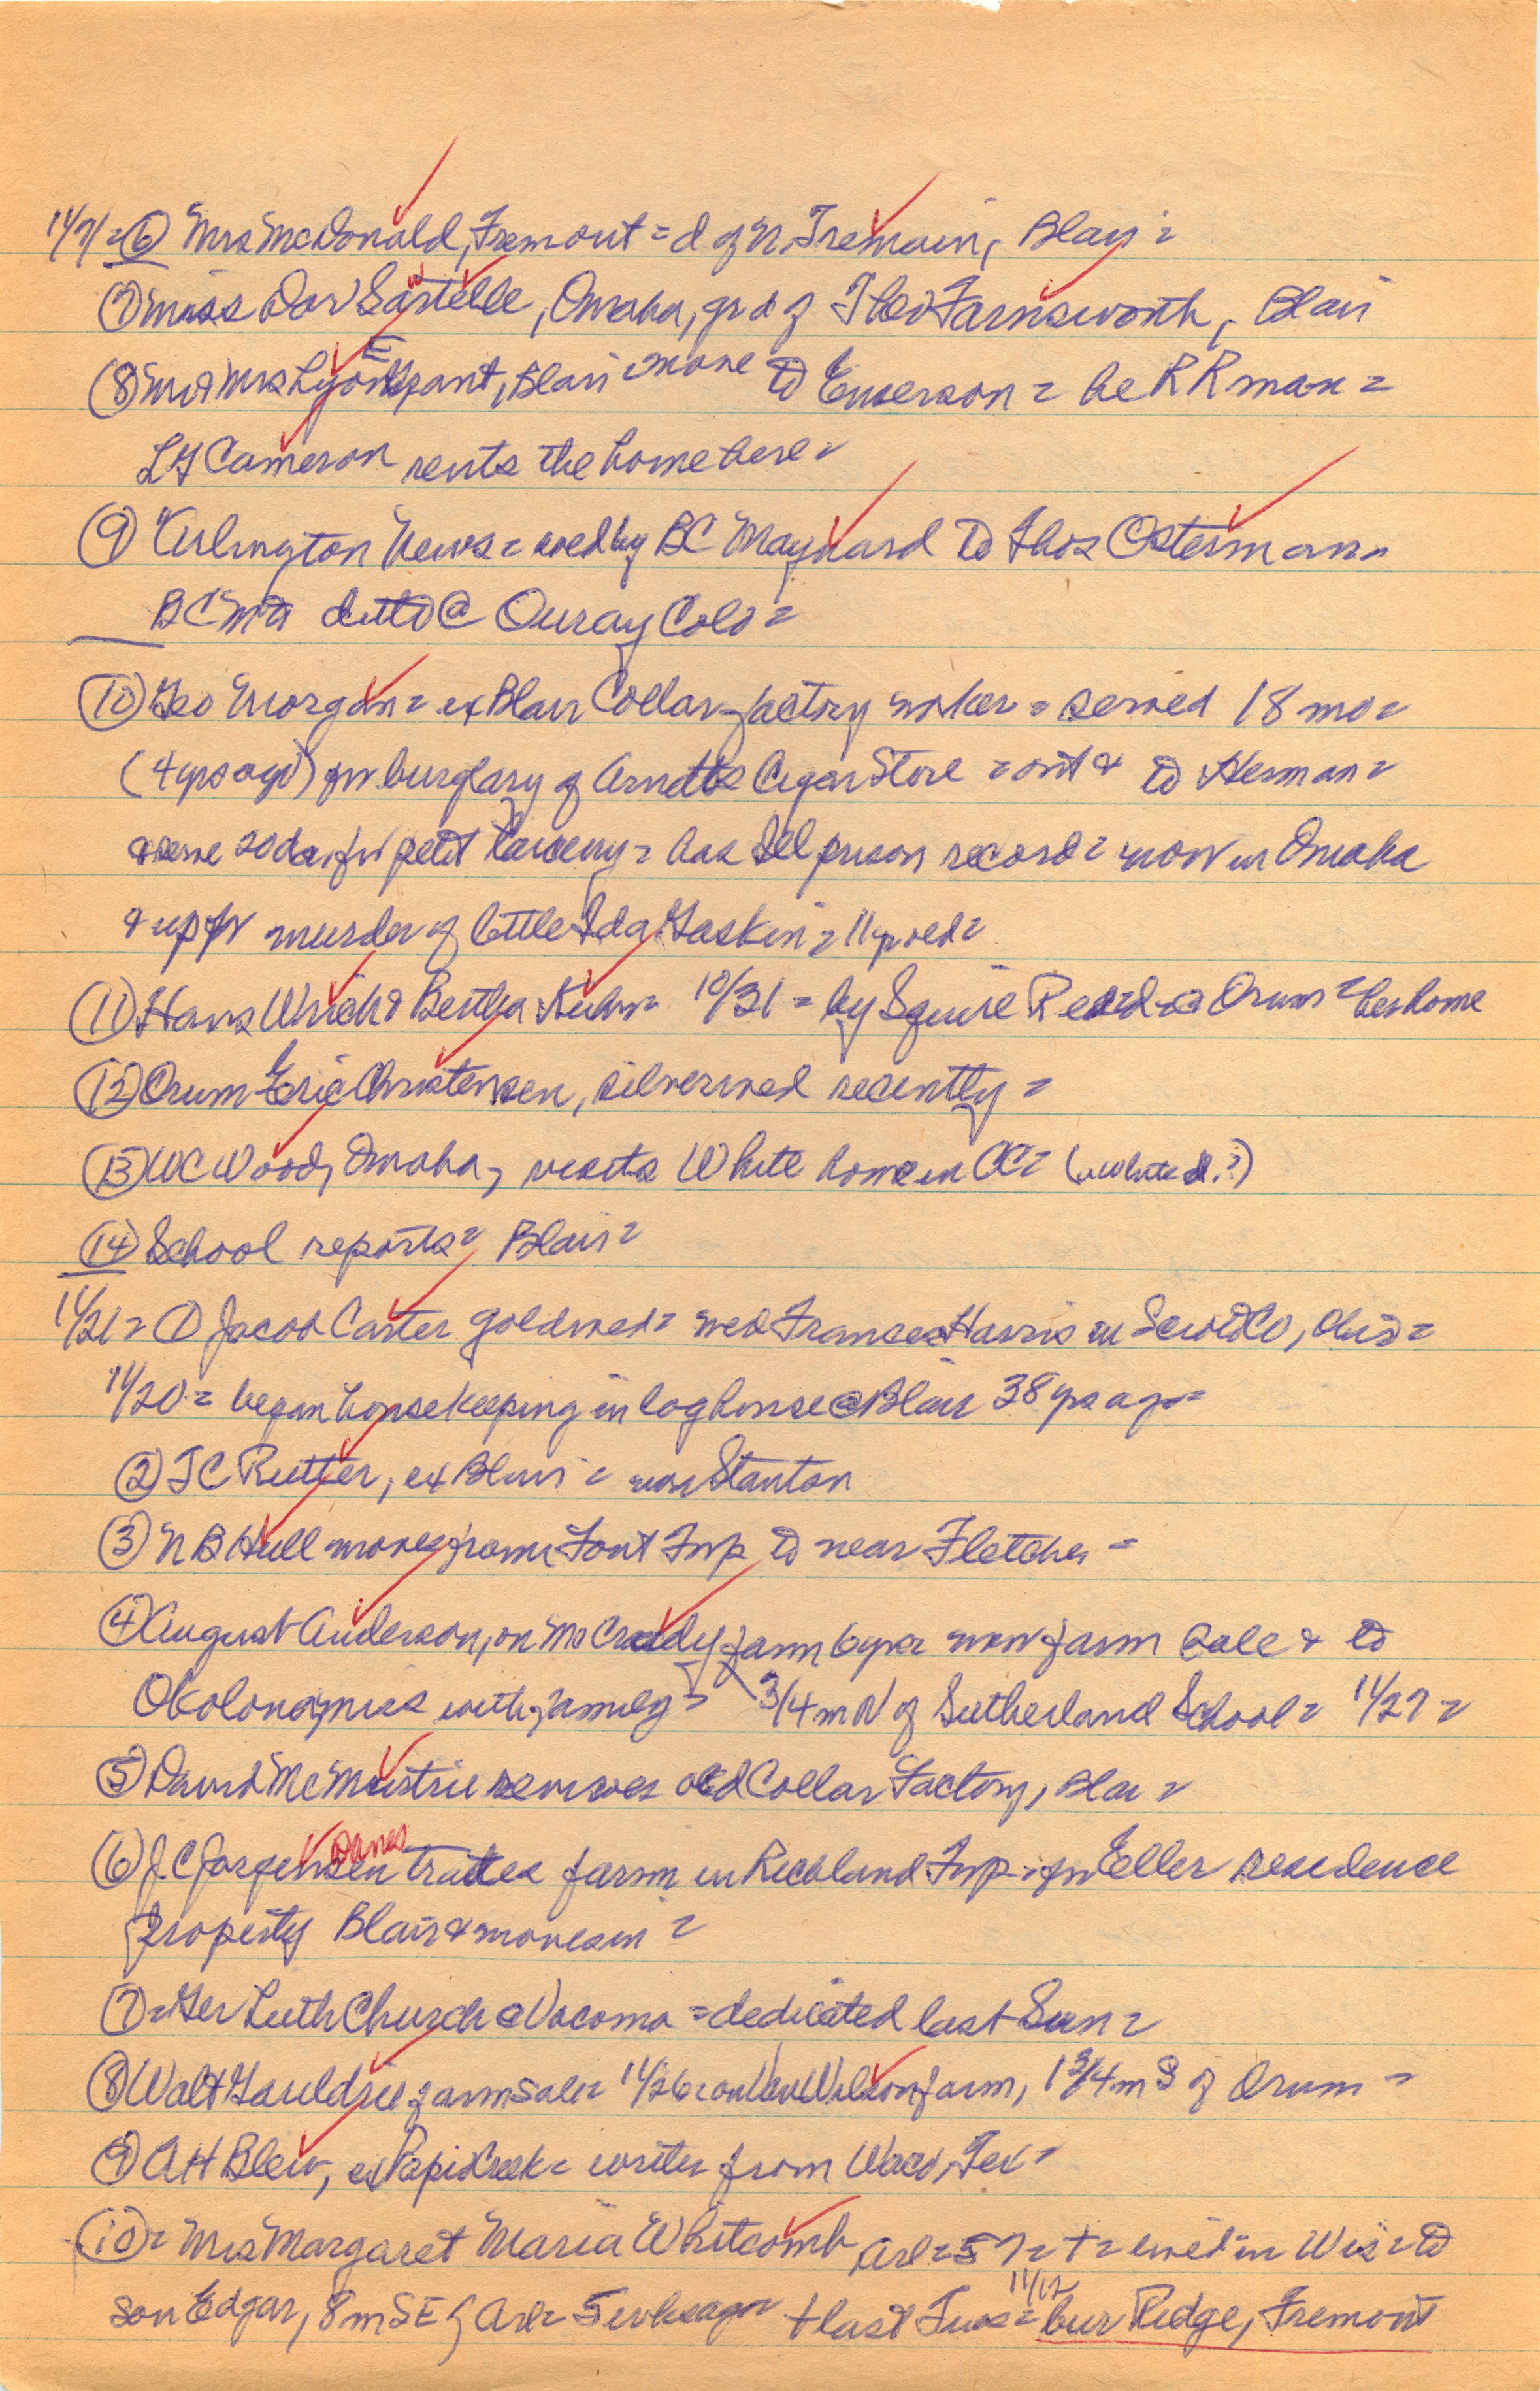 11/7/= ⑥ Mrs McDonald, Fremont = d of N. Tremain, Blair =
⑦ Miss Dar Sartelle, Omaha, gr d of Theo Farnsworth, Blair
⑧ Mr & Mrs Lyon Grant, Blair = move to Emerson = he RR man =
E
L G Cameron rents the home here =
⑨ Arlington News = by BC Maynard to Thos Osterman =
BCM ditto @ Ouray Colo =
⑩ Geo Morgan = ex Blair Collar factory worker = served 18 mo =
(4 yrs ago) for burglary of Arndts Cigar Store = out & to Herman =
& serve 20 da. for petit larceny = has Ill prison record = now in Omaha
& up for murder of little Ida Gaskin = 11 yr old =
⑪ Hans Ulrich & Bertha Kuhr = 10/31 = by Squire Reed @ Orum = her home
⑫ Orum Eric Christensen, silverwed recently =
⑬ WC Wood, Omaha, visits White home in CC = (White d.?)
⑭ School reports = Blair =
11/21 = ① Jacob Carter goldwed = wed Frances Harris in Scioto Co, Ohio =
11/20 = began housekeeping in log house @ Blair 38 yrs ago =
② TC Rutter, ex Blair = now Stanton
③ N B Hull moves from Font Twp to near Fletcher =
④ August Anderson, on McCready farm 6 yrs now farm sale & to
Okolona, Miss with family = 3/4 m N of Sutherland School = 11/27 =
⑤ David McMurtrie removes old Collar Factory, Blair =
Danes
⑥ J.C Jorgensen trades farm in Richland Twp. for Eller residence
property Blair & moves in =
⑦ = Ger Luth Church @ Vacoma = dedicated last Sun =
⑧ Walt Gauldrie farm sale = 11/26 = on Wilson farm, 1 3/4 m S of Orum =
⑨ AH Blew, ex Papio Creek = writes from Waco, Tex =
⑩ = Mrs Margaret Maria Whitcomb Arl = 57 = + = lived in Wis = to
son Edgar, 8 m SE of Arl = 5 wks ago = + last Tues = bur Ridge, Fremont
11/12